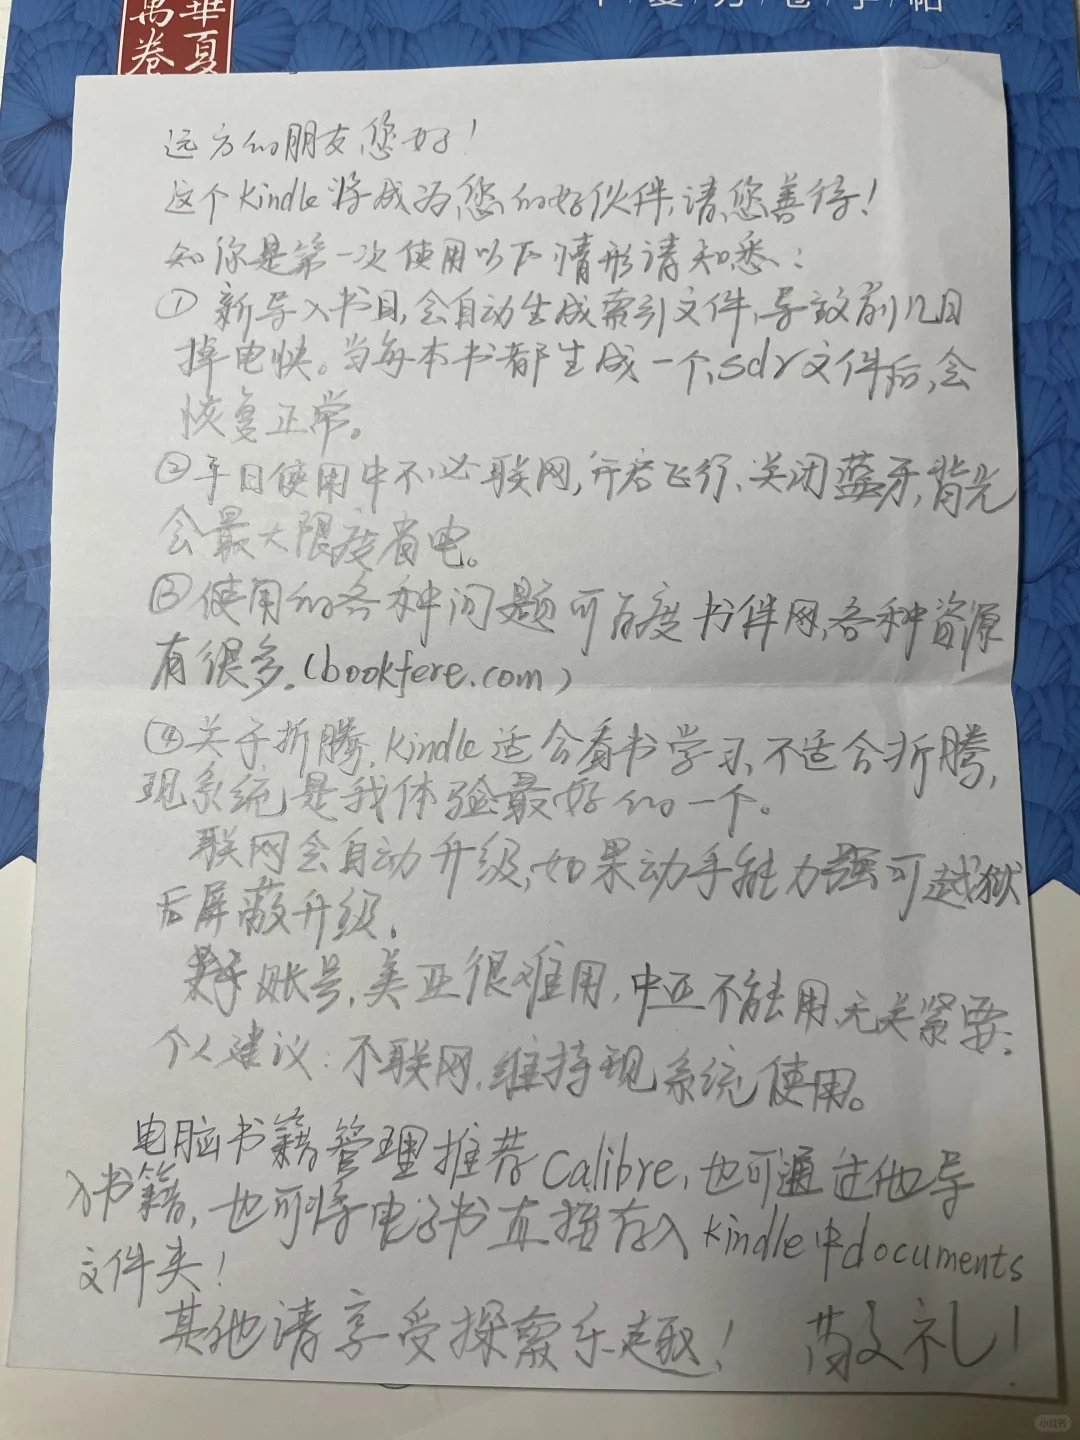 華夏
萬卷
远方的朋友您好！
这个Kindle将成为您的好伙伴，请您善待！
如你是第一次使用以下情形请知悉：
①新导入书目，会自动生成索引文件，导致前几日
掉电快。当每本书都生成一个.sdr文件后，会
恢复正常。
②平日使用中不必联网，开启飞行、关闭蓝牙，背光
会最大限度省电。
③使用的各种问题可百度书伴网，各种资源
有很多。（bookfere.com）
④关于折腾，Kindle适合看书学习，不适合折腾，
现系统是我体验最好的一个。
联网会自动升级，如果动手能力强可越狱
后屏蔽升级。
关于账号，美亚很难用，中亚不能用，无关紧要。
个人建议：不联网，维持现系统使用。
电脑书籍管理推荐Calibre，也可通过他导
入书籍，也可将电子书直接存入Kindle中documents
文件夹！
其他请享受探索乐趣！ 敬礼！
小红书